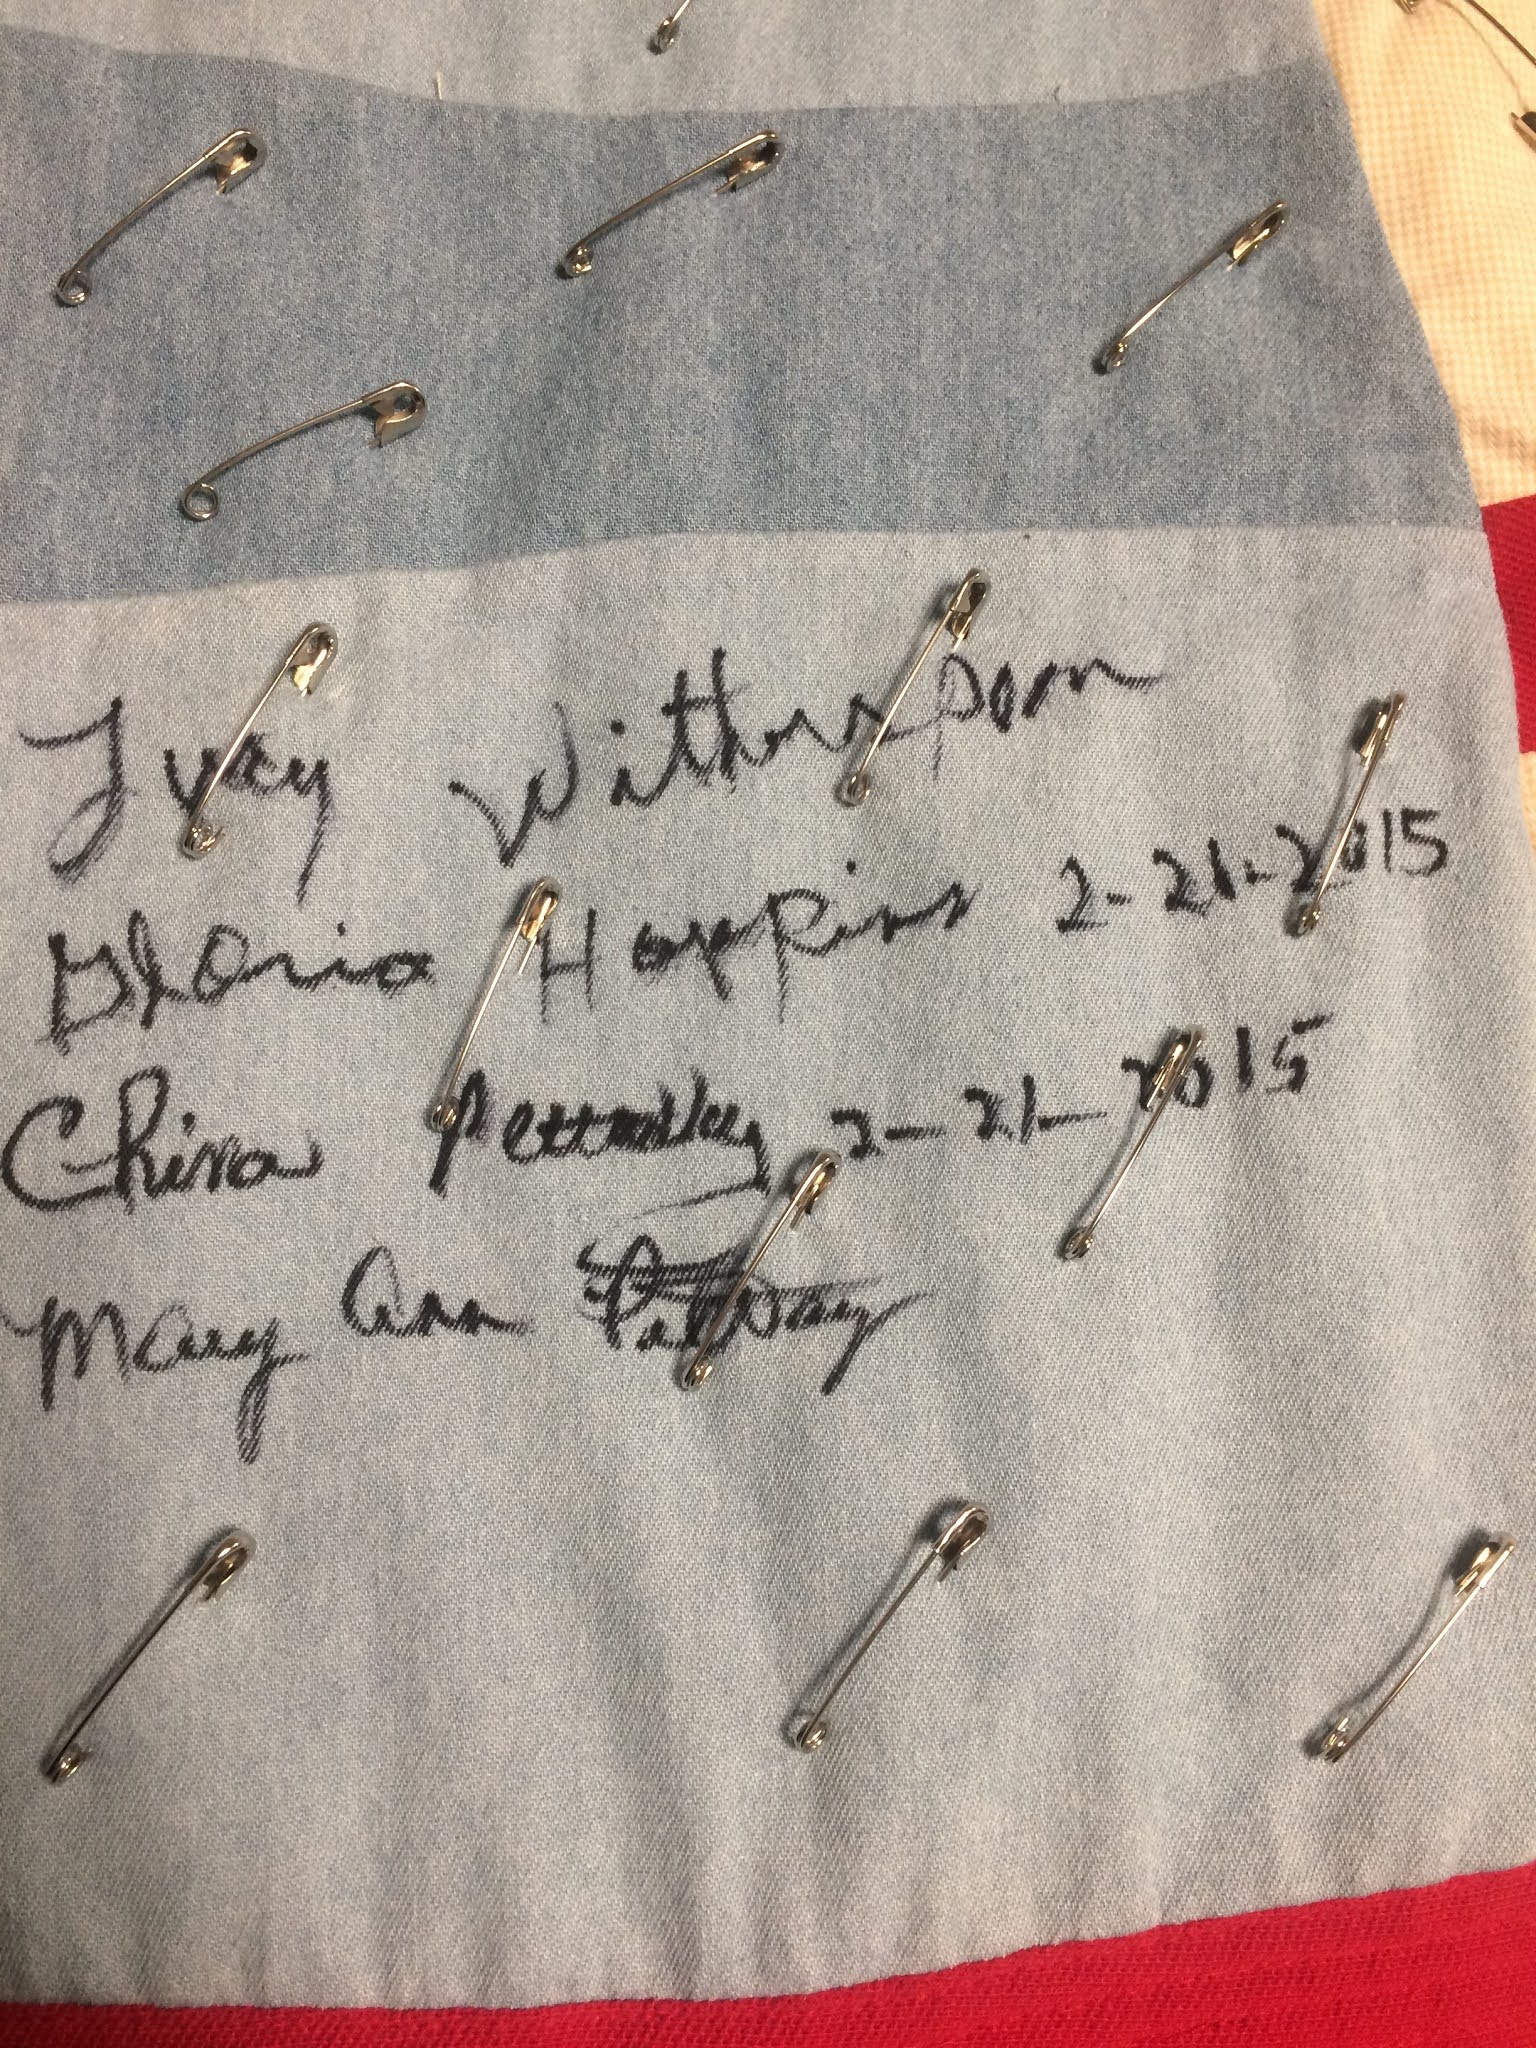 Witherspoon
Gloria Hoppins 2-21-2015
China Pettway 2-21-2015
Mary Ann Pettway